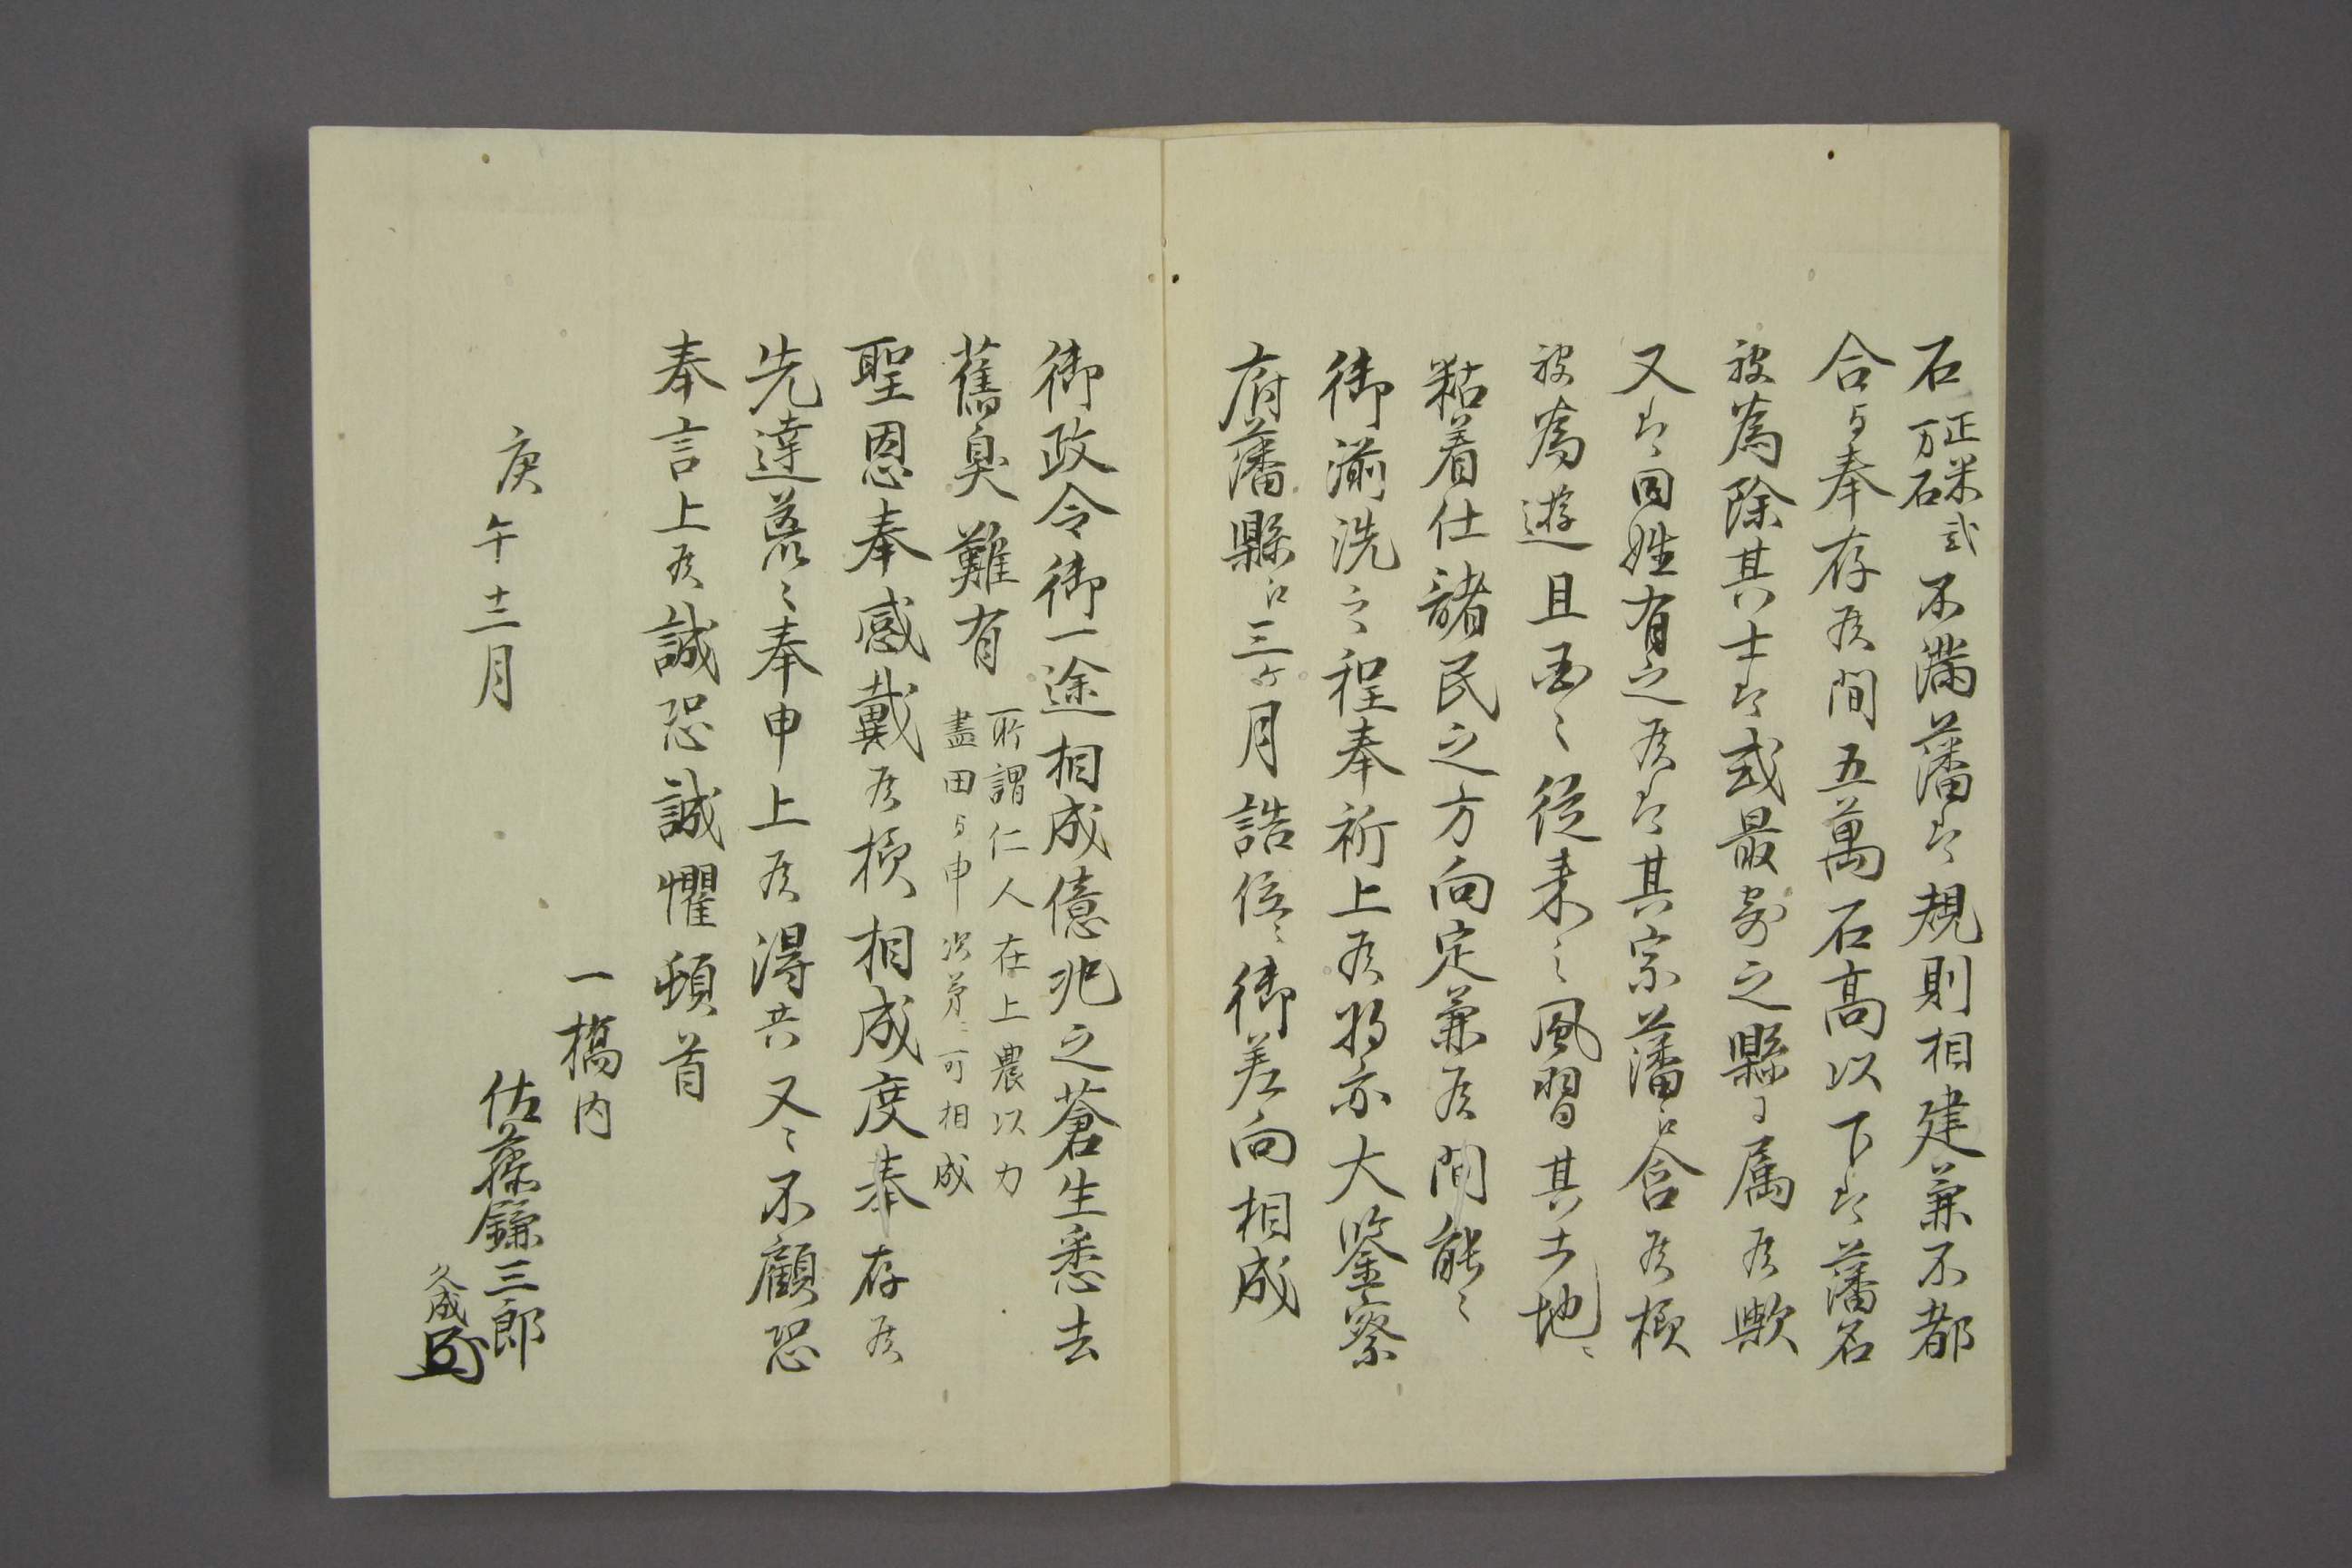 石 正米弐
万石 不満藩者規則相建兼不都
合与奉存候間五萬石高以下者藩名
被為除其士者或最寄之縣江属候歟
又者同姓有之候者其宗藩江合候様
被為遊且西々従来之風習其土地ニ
粘着仕諸民之方向定兼候間能々
御湔洗之程奉祈上候将亦大鑒察
府藩縣江三ケ月詰位御差向相成
御政令御一途相成億兆之蒼生悉去
舊臭難有 所謂仁人在上農以力
盡田与申次第ニ可相成
聖恩奉感戴候様相成度奉存候
先達荒々奉申上候得共又々不顧恐
奉言上候誠恐誠懼頓首
一橋内
庚午十二月
佐藤鎌三郎
久成